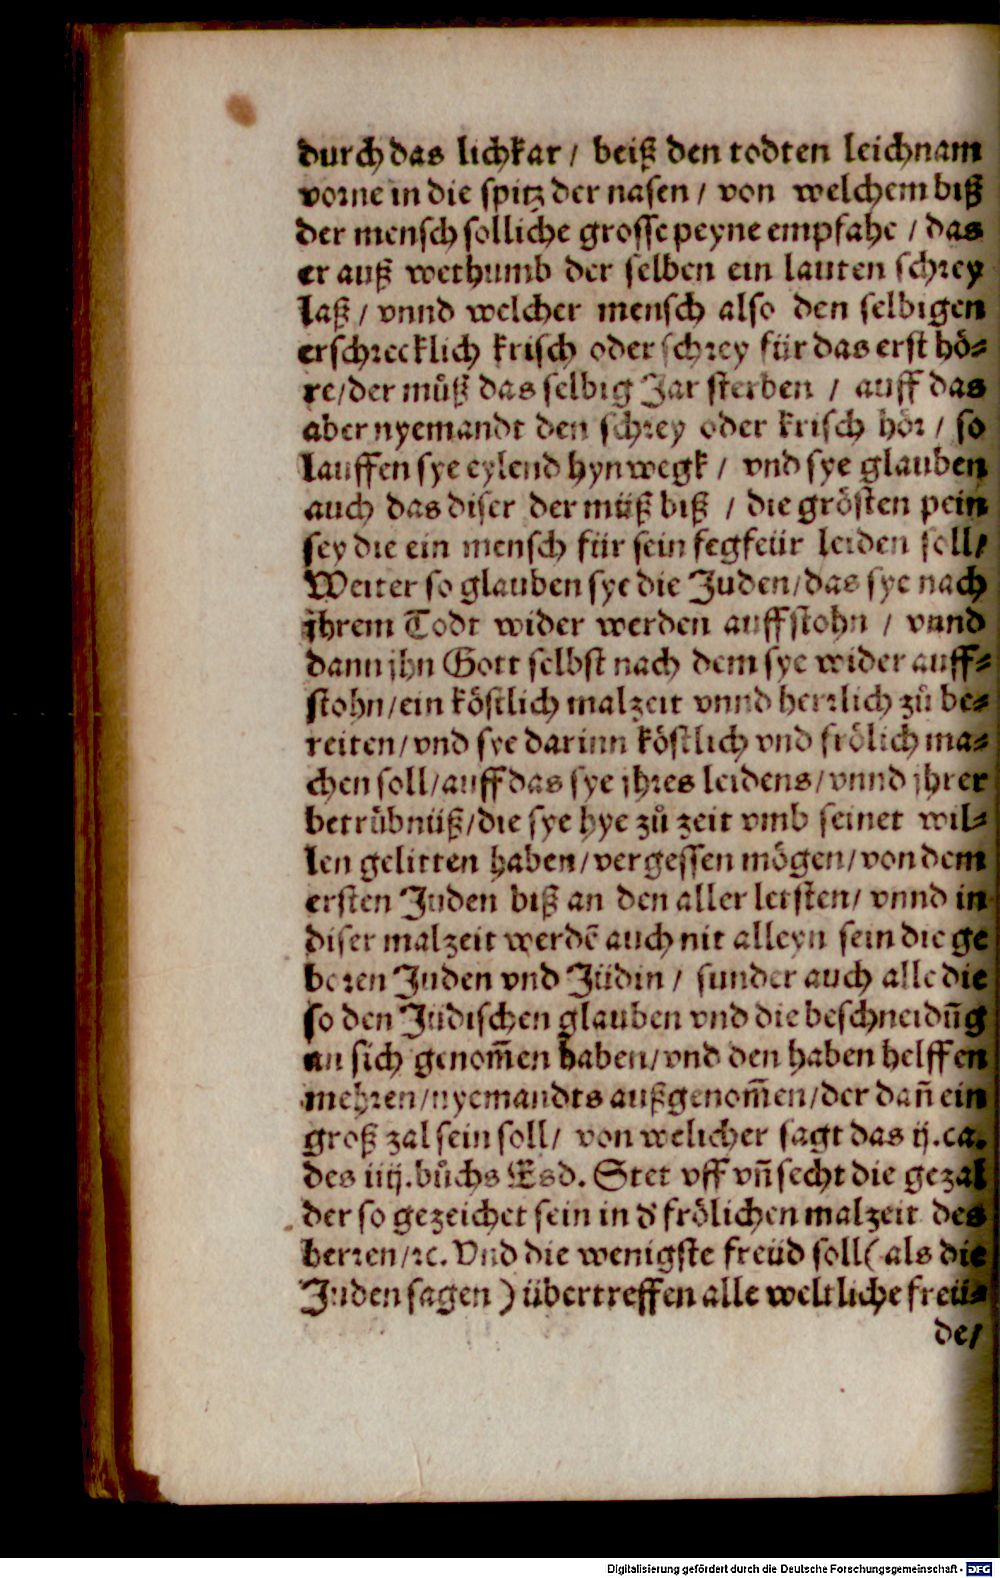 durch das lichkar / beiß den todten leichnam
vorne in die spitz der nasen / von welchem biß
der mensch solliche grosse peyne empfahe / das
er auß wethumb der selben ein lauten schrey
laß / vnnd welcher mensch also den selbigen
erschrecklich krisch oder schrey für das erst hö⸗
re/der můß das selbig Jar sterben / auff das
aber nyemandt den schrey oder krisch hör / so
lauffen sye eylend hyn wegk / vnd sye glauben
auch das diser der müß biß / die grösten pein
sey die ein mensch für sein fegfeür leiden soll/
Weiter so glauben sye die Juden/das sye nach
jhrem Todt wider werden auffstohn / vnnd
dann jhn Gott selbst nach dem sye wider auff⸗
stohn/ein köstlich malzeit vnnd herrlich zů be⸗
reiten/vnd sye darinn köstlich vnd frölich ma⸗
chen soll/auff das sye jhres leidens/vnnd jhrer
betrübnüß/die sye hye zů zeit vmb seinet wil⸗
len gelitten haben/vergessen mögen/von dem
ersten Juden biß an den aller letsten/ vnnd in
diser malzeit werdē auch nit alleyn sein die ge
boren Juden vnd Jüdin / sunder auch alle die
so den Jüdischen glauben vnd die beschneidūg
an sich genom̄en haben/vnd den haben helffen
mehren/nyemandts außgenom̄en/der dan̄ ein
groß zal sein soll/ von welicher sagt das ij.ca.
des iiij.bůchs Esd. Stet vff vn̄ secht die gezal
der so gezeichet sein in d' frölichen malzeit des
herren/ꝛc. Vnd die wenigste freüd soll( als die
Juden sagen ) übertreffen alle weltliche freü⸗
de/
Digitalisierung gefördert durch die Deutsche Forschungsgemeinschaft - DFG